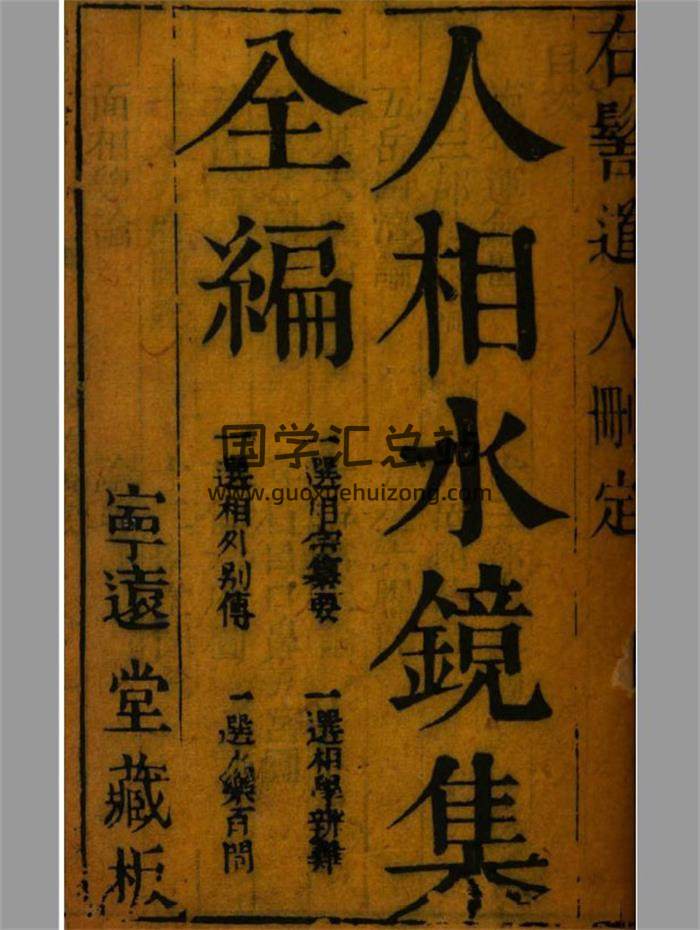 右髻道人刪定
人相水鏡集
全編
一選宗纂要
一選相學辨難
一選相外別傳
一選永樂百問
寧遠堂藏板
国学汇总站
www.guoxuehuizong.com